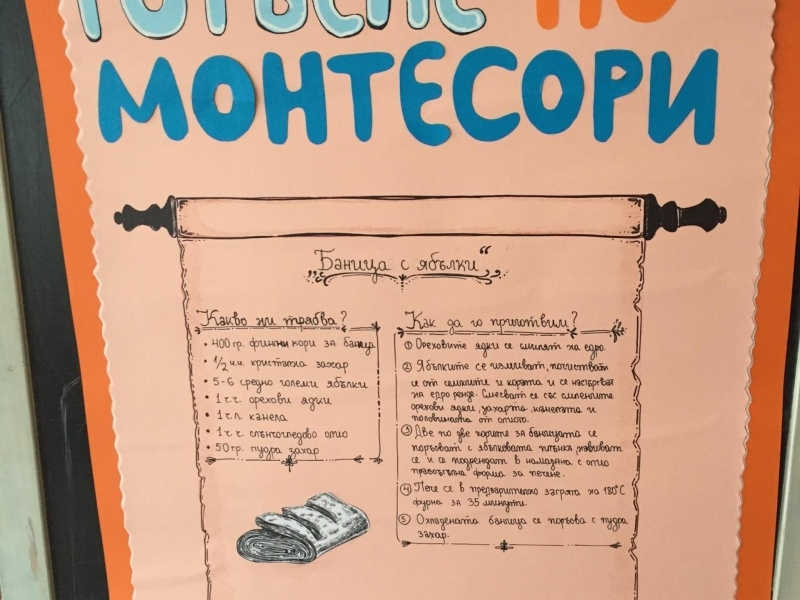 ГОТВЕНЕ ПО
МОНТЕСОРИ
„Баница с ябълки“
Какво ни трябва?
• 400 гр. фини кори за баница
• 1/2 ч.ч. кристална захар
• 5-6 средно големи ябълки
• 1 ч.ч. орехови ядки
• 1 ч.л. канела
• 1 ч.ч. слънчогледово олио
• 50 гр. пудра захар
Как да го приготвим?
1 Ореховите ядки се смилат на едро.
2 Ябълките се измиват, почистват
се от семките и кората и се настъргват
на едро ренде. Смесват се със смлените
орехови ядки, захарта, канелата и
половината от олиото.
3 Две по две корите за баницата се
поръсват с ябълковата плънка, навиват
се и се подреждат в намазана с олио
правоъгълна форма за печене.
4 Пече се в предварително загрята на 180°C
фурна за 35 минути.
5 Охладената баница се поръсва с пудра
захар.